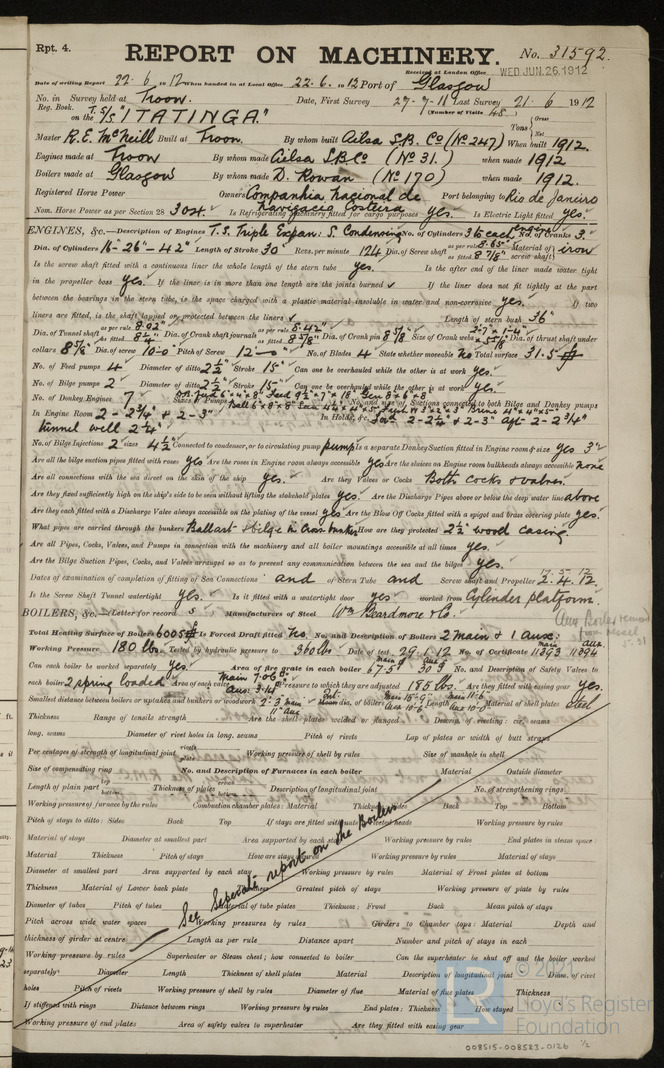 Rpt. 4.
REPORT ON MACHINERY. No. 31592.
Received at London Office WED JUN. 26. 1912
Date of writing Report 22. 6 19 12 When handed in at Local Office 22. 6. 19 12 Port of Glasgow
No. in Survey held at Troon. Date, First Survey 27-7-11 Last Survey 21. 6 1912
Reg. Book. (Number of Visits 48)
on the T.S/S "ITATINGA." Tons { Gross Net
Master R.E. McNeill Built at Troon. By whom built Ailsa S.B. Co (No 247) When built 1912.
Engines made at Troon By whom made Ailsa S.B.Co (No 31.) when made 1912
Boilers made at Glasgow By whom made D. Rowan (No 170) when made 1912.
Registered Horse Power Owners Companhia Nacional de Navigacio Costeira Port belonging to Rio de Janeiro
Nom. Horse Power as per Section 28 304. Is Refrigerating Machinery fitted for cargo purposes yes. Is Electric Light fitted yes.
ENGINES, &c.—Description of Engines T.S. Triple Expan: S. Condensing No. of Cylinders 3 in each engine No. of Cranks 3.
Dia. of Cylinders 16-26-42" Length of Stroke 30" Revs. per minute 124 Dia. of Screw shaft as per rule 8.65" as fitted 8 7/8" Material of screw shaft iron
Is the screw shaft fitted with a continuous liner the whole length of the stern tube yes. Is the after end of the liner made water tight
in the propeller boss yes. If the liner is in more than one length are the joints burned If the liner does not fit tightly at the part
between the bearings in the stern tube, is the space charged with a plastic material insoluble in water and non-corrosive yes. If two
liners are fitted, is the shaft lapped or protected between the liners Length of stern bush 36"
Dia. of Tunnel shaft as per rule 8.02" as fitted 8 1/4" Dia. of Crank shaft journals as per rule 8.42" as fitted 8 5/8" Dia. of Crank pin 8 5/8" Size of Crank webs Dia. of thrust shaft under
collars 8 5/8" Dia. of screw 10-0 Pitch of Screw 12-0 No. of Blades 4 State whether moveable No Total surface 31.5
No. of Feed pumps 4 Diameter of ditto 2 1/2" Stroke 15" Can one be overhauled while the other is at work yes.
No. of Bilge pumps 2 Diameter of ditto 2 1/2" Stroke 15" Can one be overhauled while the other is at work yes.
No. of Donkey Engines 7 Sizes of Pumps No. and size of Suctions connected to both Bilge and Donkey pumps
In Engine Room 2 - 2 3/4" + 2 - 3" In Holds, &c. For'd 2-2 1/4" & 2-3" aft 2-2 3/4"
tunnel well 2 1/4"
No. of Bilge Injections 2 sizes 4 1/2" Connected to condenser, or to circulating pump pump Is a separate Donkey Suction fitted in Engine room & size yes 3"
Are all the bilge suction pipes fitted with roses yes Are the roses in Engine room always accessible yes Are the sluices on Engine room bulkheads always accessible none
Are all connections with the sea direct on the skin of the ship yes. Are they Valves or Cocks Both cocks & valves
Are they fixed sufficiently high on the ship's side to be seen without lifting the stokehold plates yes. Are the Discharge Pipes above or below the deep water line above
Are they each fitted with a Discharge Valve always accessible on the plating of the vessel yes Are the Blow Off Cocks fitted with a spigot and brass covering plate yes.
What pipes are carried through the bunkers Ballast & bilge in cross bunker How are they protected 2 1/2" wood casing
Are all Pipes, Cocks, Valves, and Pumps in connection with the machinery and all boiler mountings accessible at all times yes.
Are the Bilge Suction Pipes, Cocks, and Valves arranged so as to prevent any communication between the sea and the bilges yes.
Dates of examination of completion of fitting of Sea Connections and of Stern Tube and Screw shaft and Propeller 2. 4. 12
Is the Screw Shaft Tunnel watertight yes. Is it fitted with a watertight door yes worked from Cylinder platform.
BOILERS, &c.—(Letter for record S) Manufacturers of Steel Wm Beardmore & Co.
Total Heating Surface of Boilers 6005 Is Forced Draft fitted No. No. and Description of Boilers 2 main & 1 Aux:
Working Pressure 180 lbs. Tested by hydraulic pressure to 360 lbs Date of test 29.1.12 No. of Certificate main 11893 aux. 11894
Can each boiler be worked separately yes. Area of fire grate in each boiler main 67.5 Aux No. and Description of Safety Valves to
each boiler 2 spring loaded Area of each valve Main 7.06 Aux: 3.14 Pressure to which they are adjusted 185 lbs. Are they fitted with easing gear yes.
Smallest distance between boilers or uptakes and bunkers or woodwork Main dia. of boilers Length Material of shell plates steel
Thickness Range of tensile strength Are the shell plates welded or flanged Descrip. of riveting: cir. seams
long. seams Diameter of rivet holes in long. seams Pitch of rivets Lap of plates or width of butt straps
Per centages of strength of longitudinal joint rivets plate Working pressure of shell by rules Size of manhole in shell
Size of compensating ring No. and Description of Furnaces in each boiler Material Outside diameter
Length of plain part top bottom Thickness of plates crown bottom Description of longitudinal joint No. of strengthening rings
Working pressure of furnace by the rules Combustion chamber plates: Material Thickness: Sides Back Top Bottom
Pitch of stays to ditto: Sides Back Top If stays are fitted with nuts or riveted heads Working pressure by rules
Material of stays Diameter at smallest part Area supported by each stay Working pressure by rules End plates in steam space:
Material Thickness Pitch of stays How are stays secured Working pressure by rules Material of stays
Diameter at smallest part Area supported by each stay Working pressure by rules Material of Front plates at bottom
Thickness Material of Lower back plate Thickness Greatest pitch of stays Working pressure of plate by rules
See Seperate report on the Boilers
Diameter of tubes Pitch of tubes Material of tube plates Thickness: Front Back Mean pitch of stays
Pitch across wide water spaces Working pressures by rules Girders to Chamber tops: Material Depth and
thickness of girder at centre Length as per rule Distance apart Number and pitch of stays in each
Working pressure by rules Superheater or Steam chest; how connected to boiler Can the superheater be shut off and the boiler worked
separately Diameter Length Thickness of shell plates Material Description of longitudinal joint Diam. of rivet
holes Pitch of rivets Working pressure of shell by rules Diameter of flue Material of flue plates Thickness
If stiffened with rings Distance between rings Working pressure by rules End plates: Thickness How stayed
Working pressure of end plates Area of safety valves to superheater Are they fitted with easing gear
© 2021
LR
Lloyd's Register
Foundation
008515-008523-0126 1/2